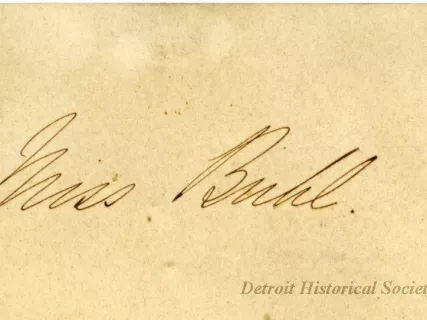 Miss. Buhl.
Detroit Historical Societ